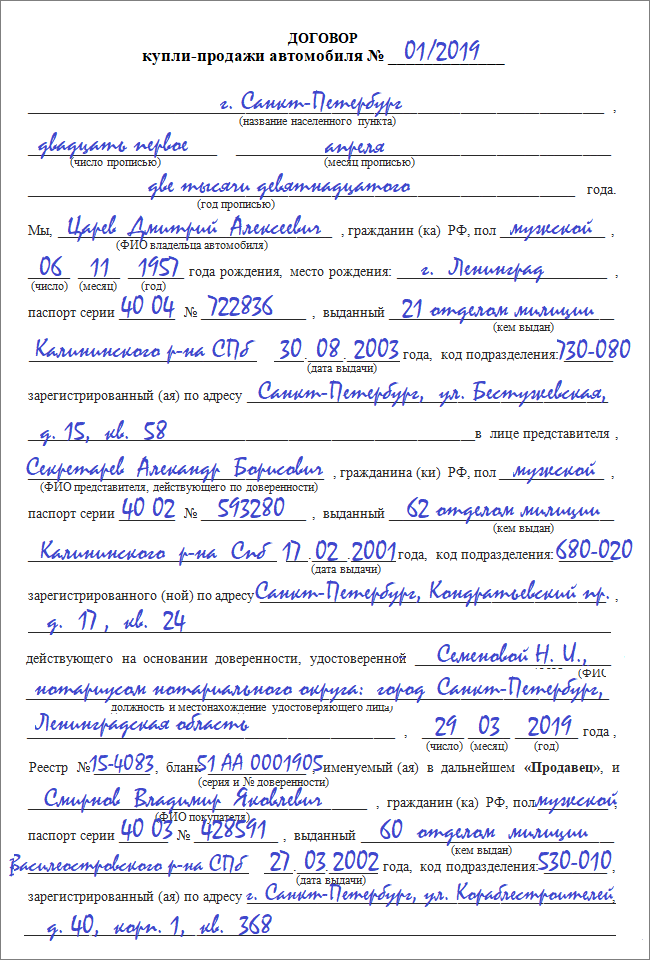 ДОГОВОР
купли-продажи автомобиля № 01/2019
г. Санкт-Петербург ,
(название населенного пункта)
двадцать первое апреля
(число прописью) (месяц прописью)
две тысячи девятнадцатого года.
(год прописью)
Мы, Царев Дмитрий Алексеевич , гражданин (ка) РФ, пол мужской ,
(ФИО владельца автомобиля)
06 11 1957 года рождения, место рождения: г. Ленинград ,
(число) (месяц) (год)
паспорт серии 40 04 № 722836 , выданный 21 отделом милиции
(кем выдан)
Калининского р-на СПб 30 . 08 . 2003 года, код подразделения: 730-080
(дата выдачи)
зарегистрированный (ая) по адресу Санкт-Петербург, ул. Бестужевская,
д. 15, кв. 58 в лице представителя ,
Секретарев Александр Борисович , гражданина (ки) РФ, пол мужской ,
(ФИО представителя, действующего по доверенности)
паспорт серии 40 02 № 593280 , выданный 62 отделом милиции
(кем выдан)
Калининского р-на Спб 17 . 02 . 2001 года, код подразделения: 680-020
(дата выдачи)
зарегистрированного (ной) по адресу Санкт-Петербург, Кондратьевский пр. ,
д. 17, кв. 24
действующего на основании доверенности, удостоверенной Семеновой Н. И.,
(ФИО
нотариусом нотариального округа: город Санкт-Петербург,
должность и местонахождение удостоверяющего лица)
Ленинградская область , 29 03 2019 года ,
(число) (месяц) (год)
Реестр № 15-4083, бланк 51 АА 0001905, именуемый (ая) в дальнейшем «Продавец», и
(серия и № доверенности)
Смирнов Владимир Яковлевич , гражданин (ка) РФ, пол мужской,
(ФИО покупателя)
паспорт серии 40 03 № 428591 , выданный 60 отделом милиции
(кем выдан)
Василеостровского р-на СПб 27 . 03 . 2002 года, код подразделения: 530-010 ,
(дата выдачи)
зарегистрированный (ая) по адресу г. Санкт-Петербург, ул. Кораблестроителей,
д. 40, корп. 1, кв. 368